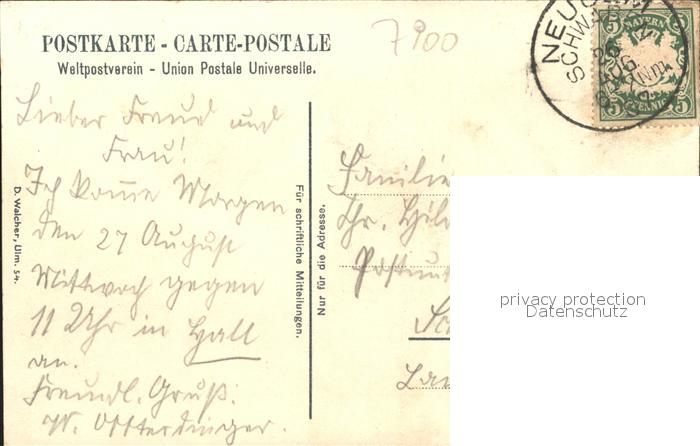 POSTKARTE - CARTE-POSTALE
Weltpostverein - Union Postale Universelle.
7900
Lieber Freund und
Frau!
Ich komme Morgen
den 27 August
Mittwoch gegen
11 Uhr in Hall
an.
Freundl. Gruß:
W. Otterdinger.
D. Walcher, Ulm. 54.
Für schriftliche Mitteilungen.
Nur für die Adresse.
Familie
Chr.
NEU
SCHWA
26
AUG
BAYERN
5
5
PFENNIG
privacy protection
Datenschutz